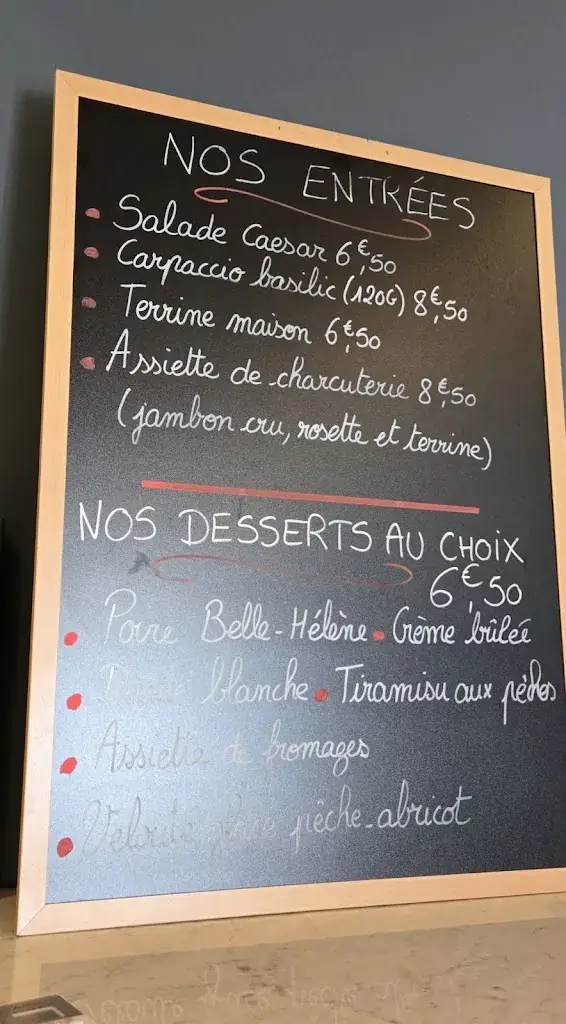 NOS ENTRÉES
• Salade Caesar 6€,50
• Carpaccio basilic (120G) 8€,50
• Terrine maison 6€,50
• Assiette de charcuterie 8€,50
(jambon cru, rosette et terrine)
NOS DESSERTS AU CHOIX
6€,50
• Poire Belle-Hélène • Crème brûlée
• Dame blanche • Tiramisu aux pêches
• Assiette de fromages
• Velouté glacé pêche-abricot